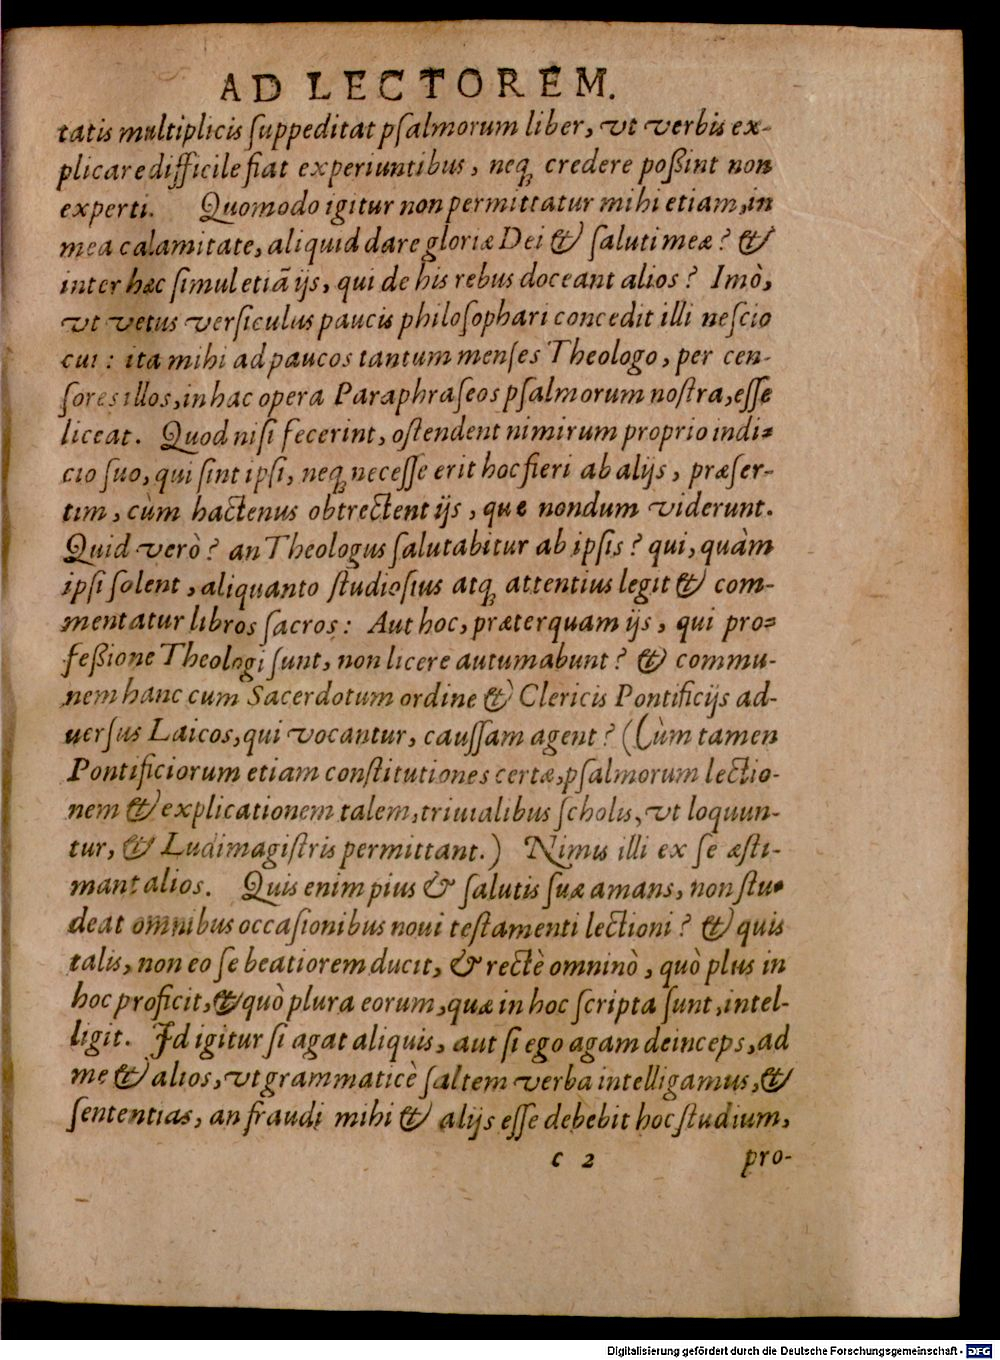 AD LECTOREM.
tatis multiplicis ſuppeditat pſalmorum liber, vt verbis ex-
plicare difficile fiat experiuntibus, neq; credere poßint non
experti. Quomodo igitur non permittatur mihi etiam, in
mea calamitate, aliquid dare gloriæ Dei & ſaluti meæ? &
inter hæc ſimul etiã ijs, qui de his rebus doceant alios? Imò,
vt vetus verſiculus paucis philoſophari concedit illi neſcio
cui: ita mihi ad paucos tantum menſes Theologo, per cen-
ſores illos, in hac opera Paraphraſeos pſalmorum noſtra, eſſe
liceat. Quod niſi fecerint, oſtendent nimirum proprio indi-
cio ſuo, qui ſint ipſi, neq; neceſſe erit hoc fieri ab alijs, præſer-
tim, cùm hactenus obtrectent ijs, que nondum viderunt.
Quid verò? an Theologus ſalutabitur ab ipſis? qui, quàm
ipſi ſolent, aliquanto ſtudioſius atq; attentius legit & com-
mentatur libros ſacros: Aut hoc, præterquam ijs, qui pro-
feßione Theologi ſunt, non licere autumabunt? & commu-
nem hanc cum Sacerdotum ordine & Clericis Pontificijs ad-
uerſus Laicos, qui vocantur, cauſſam agent? (Cùm tamen
Pontificiorum etiam conſtitutiones certæ, pſalmorum lectio-
nem & explicationem talem, triuialibus ſcholis, vt loquun-
tur, & Ludimagiſtris permittant.) Nimis illi ex ſe æſti-
mant alios. Quis enim pius & ſalutis ſuæ amans, non ſtu-
deat omnibus occaſionibus noui teſtamenti lectioni? & quis
talis, non eo ſe beatiorem ducit, & rectè omninò, quò plus in
hoc proficit, & quò plura eorum, quæ in hoc ſcripta ſunt, intel-
ligit. Id igitur ſi agat aliquis, aut ſi ego agam deinceps, ad
me & alios, vt grammaticè ſaltem verba intelligamus, &
ſententias, an fraudi mihi & alijs eſſe debebit hoc ſtudium,
c 2 pro-
Digitalisierung gefördert durch die Deutsche Forschungsgemeinschaft - DFG